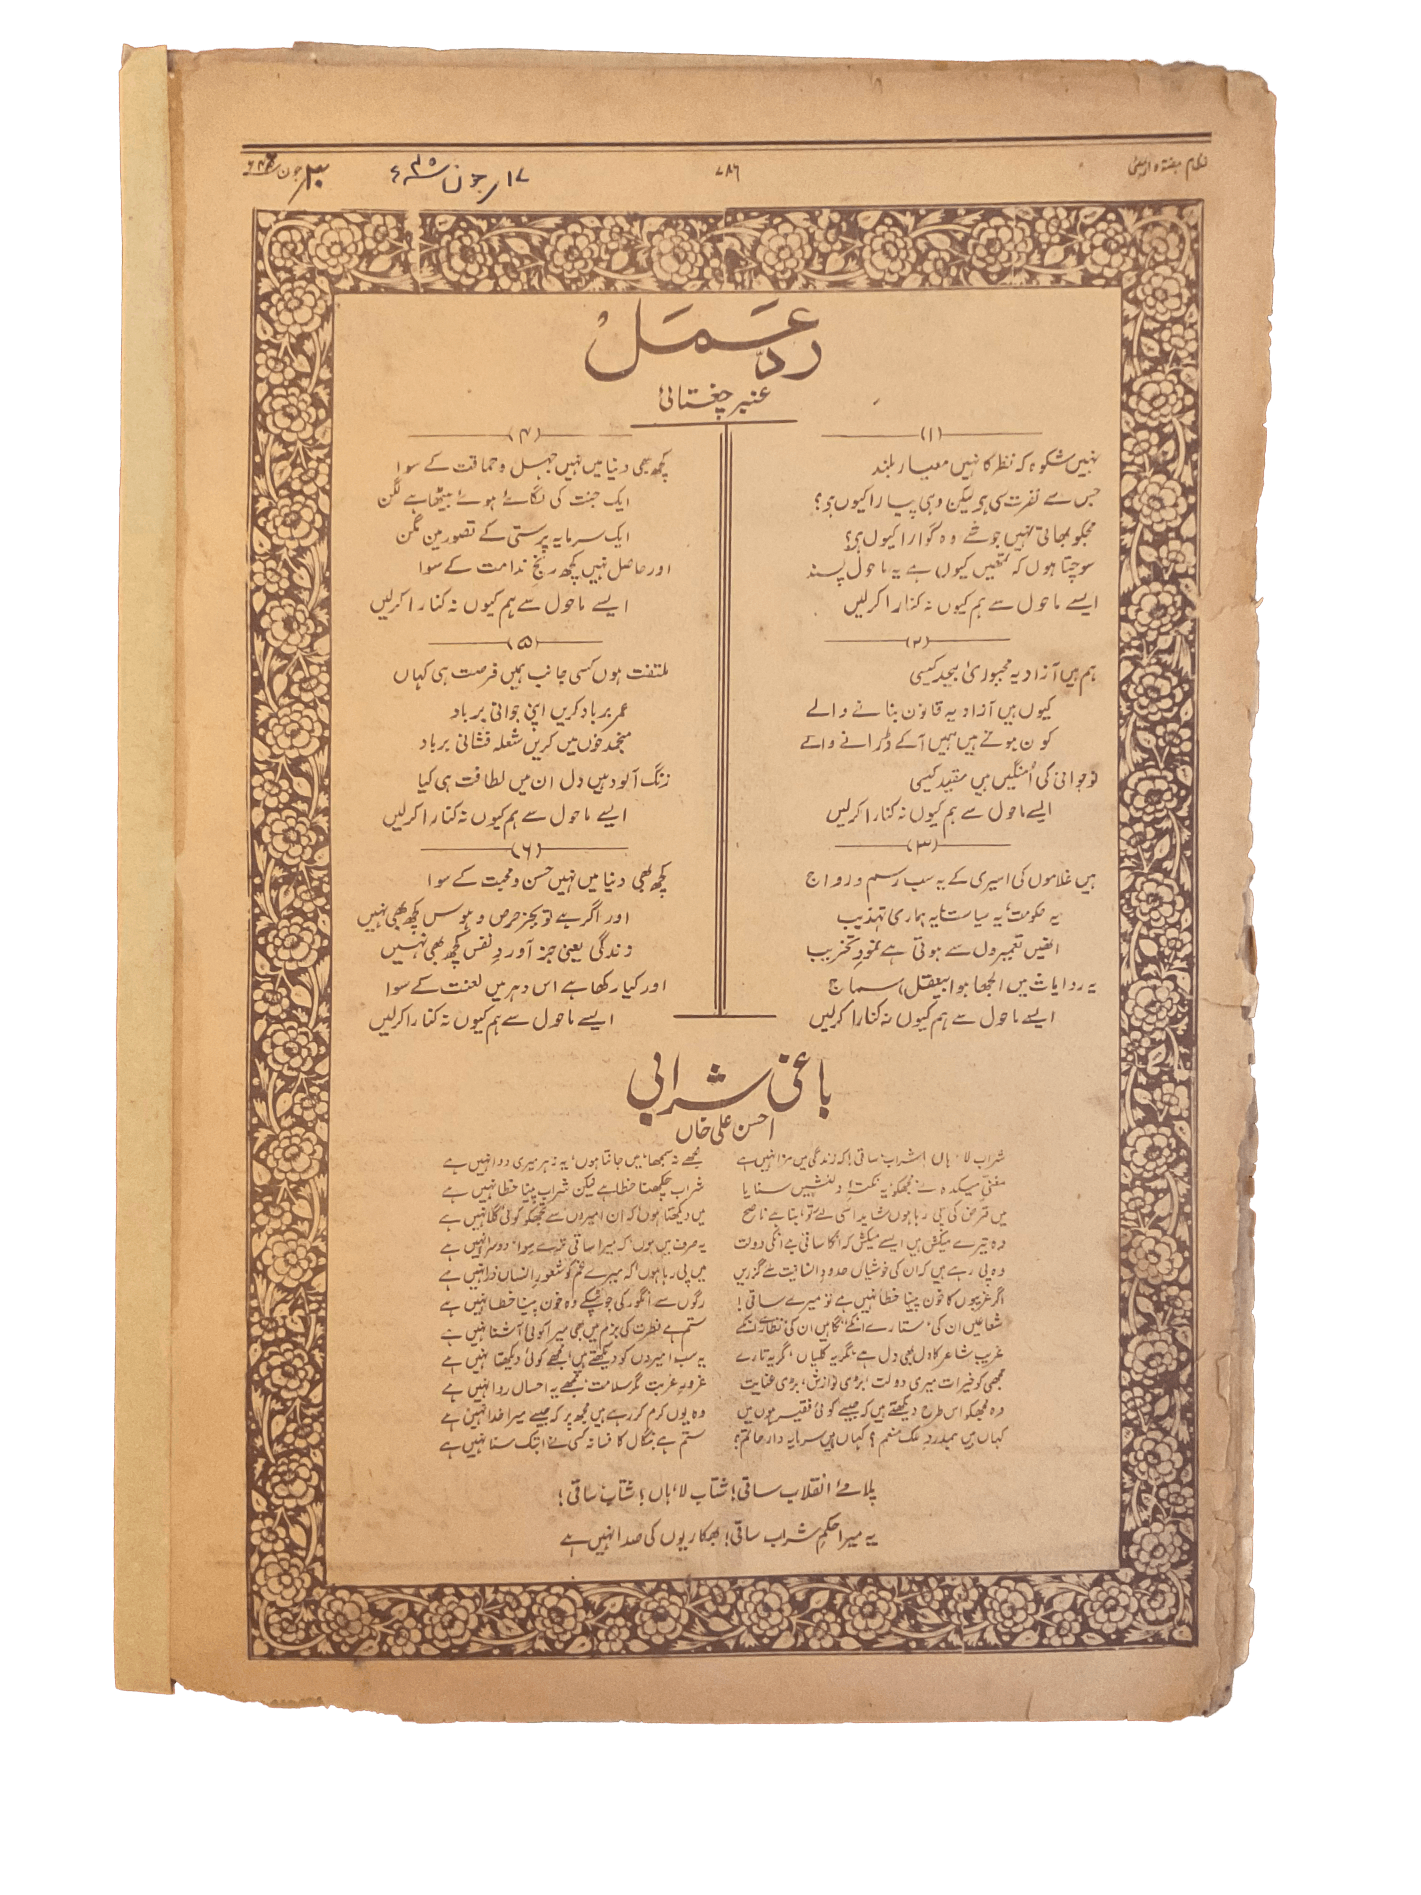 نظام ہفتہ وار بمبئی
۷۸۶
۱۷/جون ۴۵ء
۳/جون
ردِّ عَمَلْ
عنبر چغتائی
(۱)
نہیں شکوہ کہ نظر کا نہیں معیار بلند
جس سے نفرت سی ہو لیکن وہی پیارا کیوں ہو؟
مجکو بھاتی نہیں جو شے وہ گوارا کیوں ہو؟
سوچتا ہوں کہ تمھیں کیوں ہے یہ ماحول پسند
ایسے ماحول سے ہم کیوں نہ کنارا کرلیں
(۲)
ہم ہیں آزاد یہ مجبوریٔ بیجد کیسی
کیوں ہیں آزاد یہ قانون بنانے والے
کون ہوتے ہیں ہمیں آکے ڈرانے والے
نوجوانی کی اُمنگیں ہیں مقید کیسی
ایسے ماحول سے ہم کیوں نہ کنارا کرلیں
(۳)
ہیں غلاموں کی اسیری کے یہ سب رسم و رواج
یہ حکومت، یہ سیاست، یہ ہماری تہذیب
انھیں تعمیروں سے ہوتی ہے نمودِ تخریب
یہ روایات میں الجھا ہوا بیعقل، سماج
ایسے ماحول سے ہم کیوں نہ کنارا کرلیں
(۴)
کچھ بھی دنیا میں نہیں جہل و حماقت کے سوا
ایک جنت کی لگائے ہوئے بیٹھا ہے لگن
ایک سرمایہ پرستی کے تصور مین مگن
اور حاصل نہیں کچھ رنجِ ندامت کے سوا
ایسے ماحول سے ہم کیوں نہ کنارا کرلیں
(۵)
ملتفت ہوں کسی جانب ہمیں فرصت ہی کہاں
عمر برباد کریں اپنی جوانی برباد
منجمد خوں میں کریں شعلہ فشانی برباد
زنگ آلود ہیں دل ان میں لطافت ہی کیا
ایسے ماحول سے ہم کیوں نہ کنارا کرلیں
(۶)
کچھ بھی دنیا میں نہیں حسن و محبت کے سوا
اور اگر ہے تو بجز حرص و ہوس کچھ بھی نہیں
زندگی یعنی جز آوردِ نفس کچھ بھی نہیں
اور کیا رکھا ہے اس دہر میں لعنت کے سوا
ایسے ماحول سے ہم کیوں نہ کنارا کرلیں
باغی شرابی
احسن علی خاں
شراب لا، ہاں! شراب ساقی! کہ زندگی میں مزا نہیں ہے
مجھے نہ سمجھا، میں جانتا ہوں، یہ زہر میری دوا نہیں ہے
مغنیِ میکدہ نے مجھکو یہ نکتۂ دلنشیں سنایا
شراب چکھنا خطا ہے لیکن شراب پینا خطا نہیں ہے
میں قرض کی پی رہا ہوں شاید اسی لئے تو بنا ہے ناصح
میں دیکھتا ہوں کہ ان امیروں سے تجھکو کوئی گلا نہیں ہے
وہ تیرے میکش ہیں ایسے میکش کہ انکا ساقی ہے انکی دولت
یہ صرف میں ہوں، کہ میرا ساقی ترے سوا، دوسرا نہیں ہے
وہ پی رہے ہیں کہ ان کی خوشیاں حدودِ انسانیت سے گزریں
میں پی رہا ہوں کہ میرے غم کو شعورِ انساں ذرا نہیں ہے
اگر غریبوں کا خون پینا خطا نہیں ہے تو میرے ساقی!
رگوں سے انگور کی جو ٹپکے وہ خون پینا خطا نہیں ہے
شعاعیں ان کی، ستارے انکے، نگاہیں ان کی نظارے انکے
ستم ہے فطرت کی بزم میں بھی میرا کوئی آشنا نہیں ہے
غریب شاعر کا دل بھی دل ہے، مگر یہ کلیاں، مگر یہ تارے
یہ سب امیروں کو دیکھتے ہیں، مجھے کوئی دیکھتا نہیں ہے
مجھی کو خیرات میری دولت، بڑی نوازش، بڑی عنایت
غرورِ غربت مگر سلامت، مجھے یہ احساں روا نہیں ہے
وہ مجھکو اس طرح دیکھتے ہیں کہ جیسے کوئی فقیر ہوں میں
وہ یوں کرم کر رہے ہیں مجھ پر کہ جیسے میرا خدا نہیں ہے
کہاں ہیں ہمدرد ملک منعم؟ کہاں ہیں سرمایہ دار حاتم؟
ستم ہے بنگال کا فسانہ کسی نے ابتک سنا نہیں ہے
پلا مئے انقلاب ساقی! شتاب لا، ہاں! شتاب ساقی!
یہ میرا حکمِ شراب ساقی! بھکاریوں کی صدا نہیں ہے